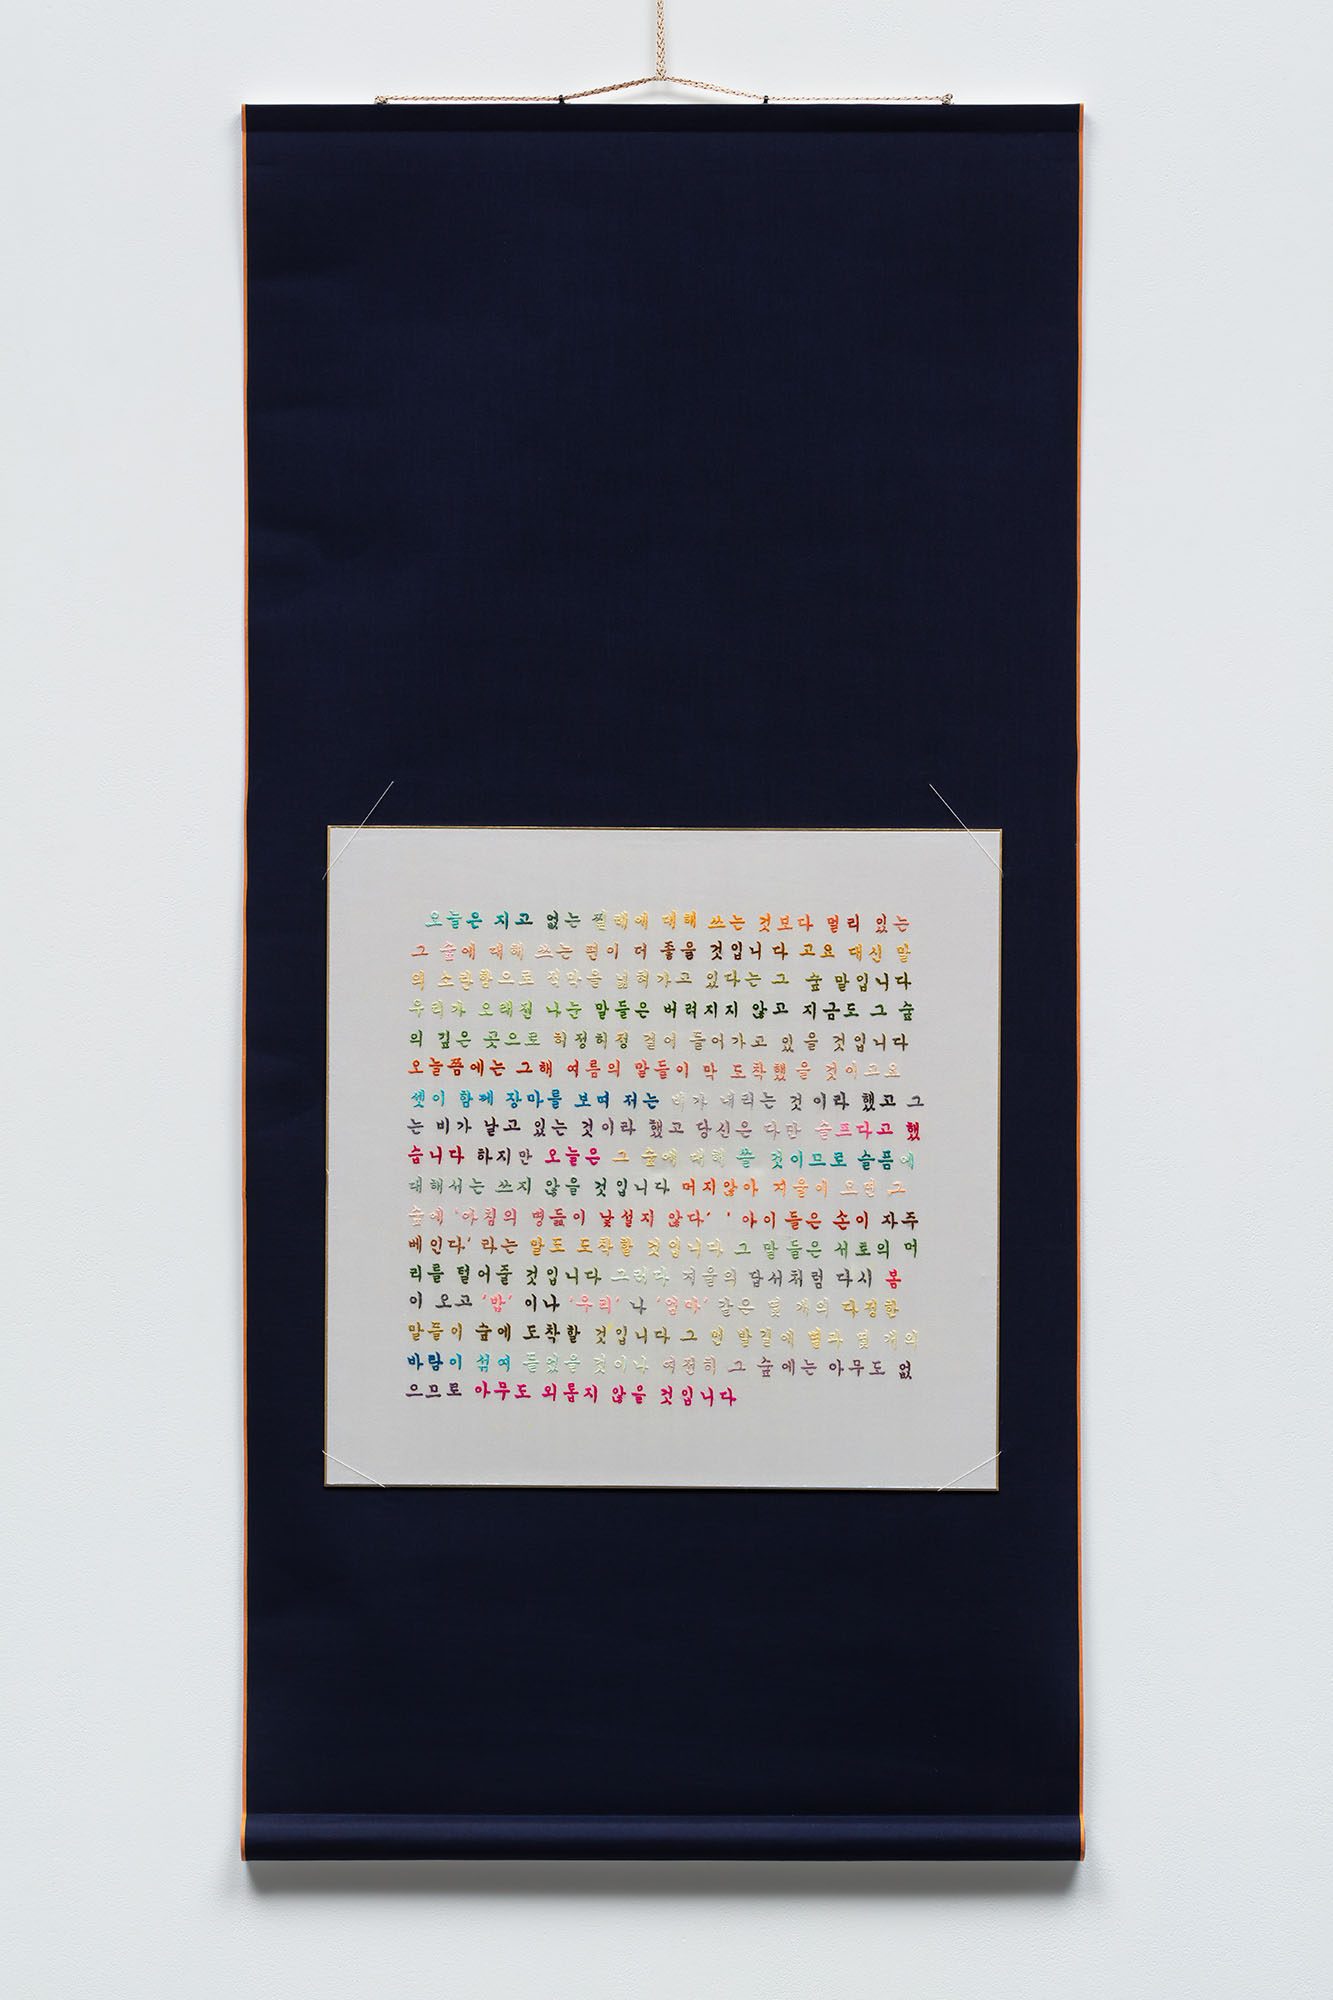 오늘은 지고 없는 찔레에 대해 쓰는 것보다 멀리 있는
그 숲에 대해 쓰는 편이 더 좋을 것입니다 고요 대신 말
의 소란함으로 적막을 넓혀가고 있다는 그 숲 말입니다
우리가 오래전 나눈 말들은 버려지지 않고 지금도 그 숲
의 깊은 곳으로 허정허정 걸어 들어가고 있을 것입니다
오늘쯤에는 그해 여름의 말들이 막 도착했을 것이고요
셋이 함께 장마를 보며 저는 비가 내리는 것이라 했고 그
는 비가 날고 있는 것이라 했고 당신은 다만 슬프다고 했
습니다 하지만 오늘은 그 숲에 대해 쓸 것이므로 슬픔에
대해서는 쓰지 않을 것입니다 머지않아 겨울이 오면 그
숲에 '아침의 병듦이 낯설지 않다' '아이들은 손이 자주
베인다'라는 말도 도착할 것입니다 그 말들은 서로의 머
리를 털어줄 것입니다 그러다 겨울의 답서처럼 다시 봄
이 오고 '밥'이나 '우리'나 '엄마' 같은 몇 개의 다정한
말들이 숲에 도착할 것입니다 그 먼 발길에 볕과 몇 개의
바람이 섞여 들었을 것이나 여전히 그 숲에는 아무도 없
으므로 아무도 외롭지 않을 것입니다